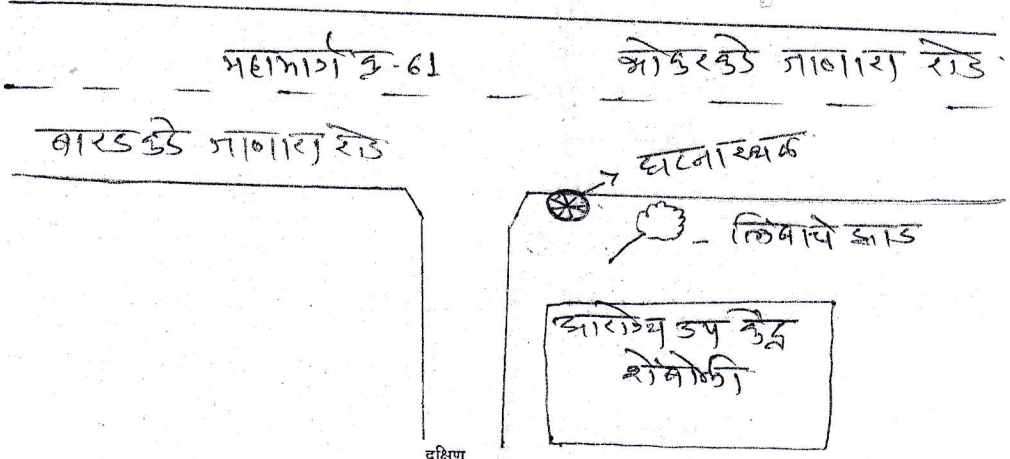 महामार्ग क्र-61
भोकरकडे जाणारा रोड.
बारडकडे जाणारा रोड
घटनास्थळ
लिंबाचे झाड
आरोग्य उप केंद्र
शेंबोली
दक्षिण